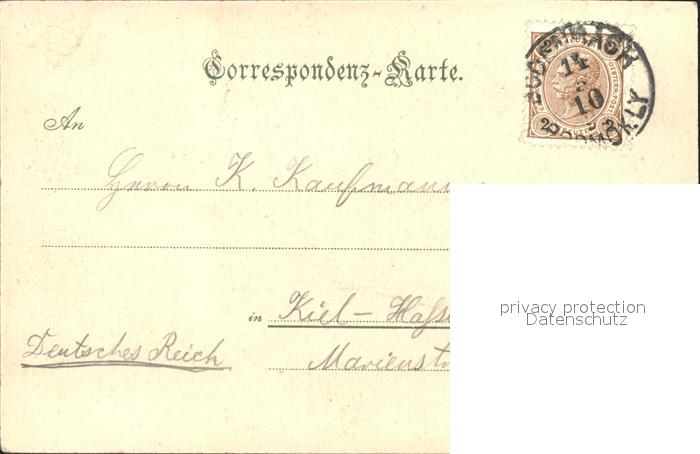 Correspondenz-Karte.
An
Herrn K. Kaufmann
in Kiel - Hasse
Deutsches Reich
Marienst
privacy protection
Datenschutz
14
10
2 2